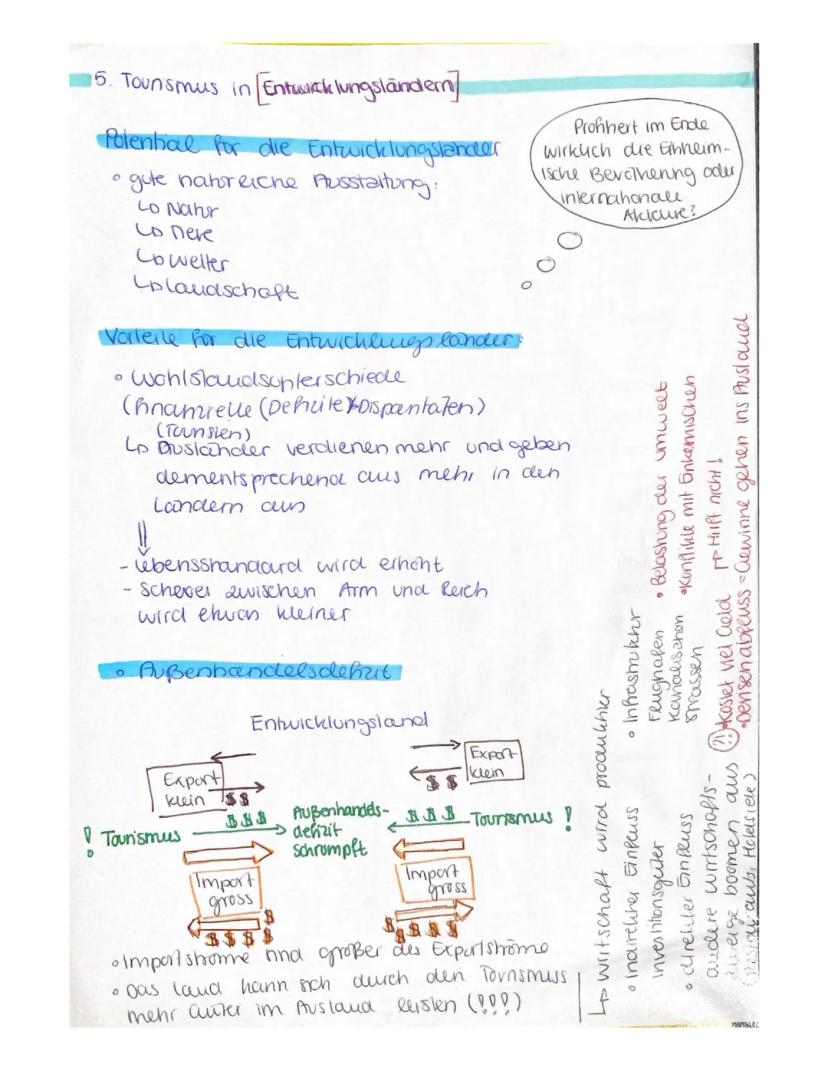 5. Tourismus in [Entwicklungsländern]
Potential für die Entwicklungsländer
• gute naturreiche Ausstattung:
↳ Natur
↳ Tiere
↳ Wetter
↳ Landschaft
Profitiert im Ende
wirklich die Einheim-
ische Bevölkerung oder
internationale
Akteure?
Vorteile für die Entwicklungsländer:
• Wohlstandsunterschiede
(finanzielle (Defizite) Disparitäten)
(Touristen)
↳ Ausländer verdienen mehr und geben
dementsprechend aus mehr in den
Ländern aus
⇓
- Lebensstandard wird erhöht
- Schere zwischen Arm und Reich
wird etwas kleiner
• Außenhandelsdefizit
Entwicklungsland
Export
klein
$$
$$$
! Tourismus
Import
gross
$$$$
Außenhandels-
defizit
schrumpft
Export
klein
$$
$$$
Tourismus !
Import
gross
$$$$
• Importströme sind größer als Exportströme
• Das Land kann sich durch den Tourismus
mehr Güter im Ausland leisten (!!!)
↳ Wirtschaft wird produktiver
• Indirekter Einfluss
Investitionsgüter
• Infrastruktur
Flughafen
Kanalisation
Strassen
• Belastung der Umwelt
• Konflikte mit Einheimischen
• direkter Einfluss
andere Wirtschafts-
zweige boomen aus
Hotels
(!!) • Kostet viel Geld
↱ Hilft nicht!
• Devisenabfluss = Gewinne gehen ins Ausland